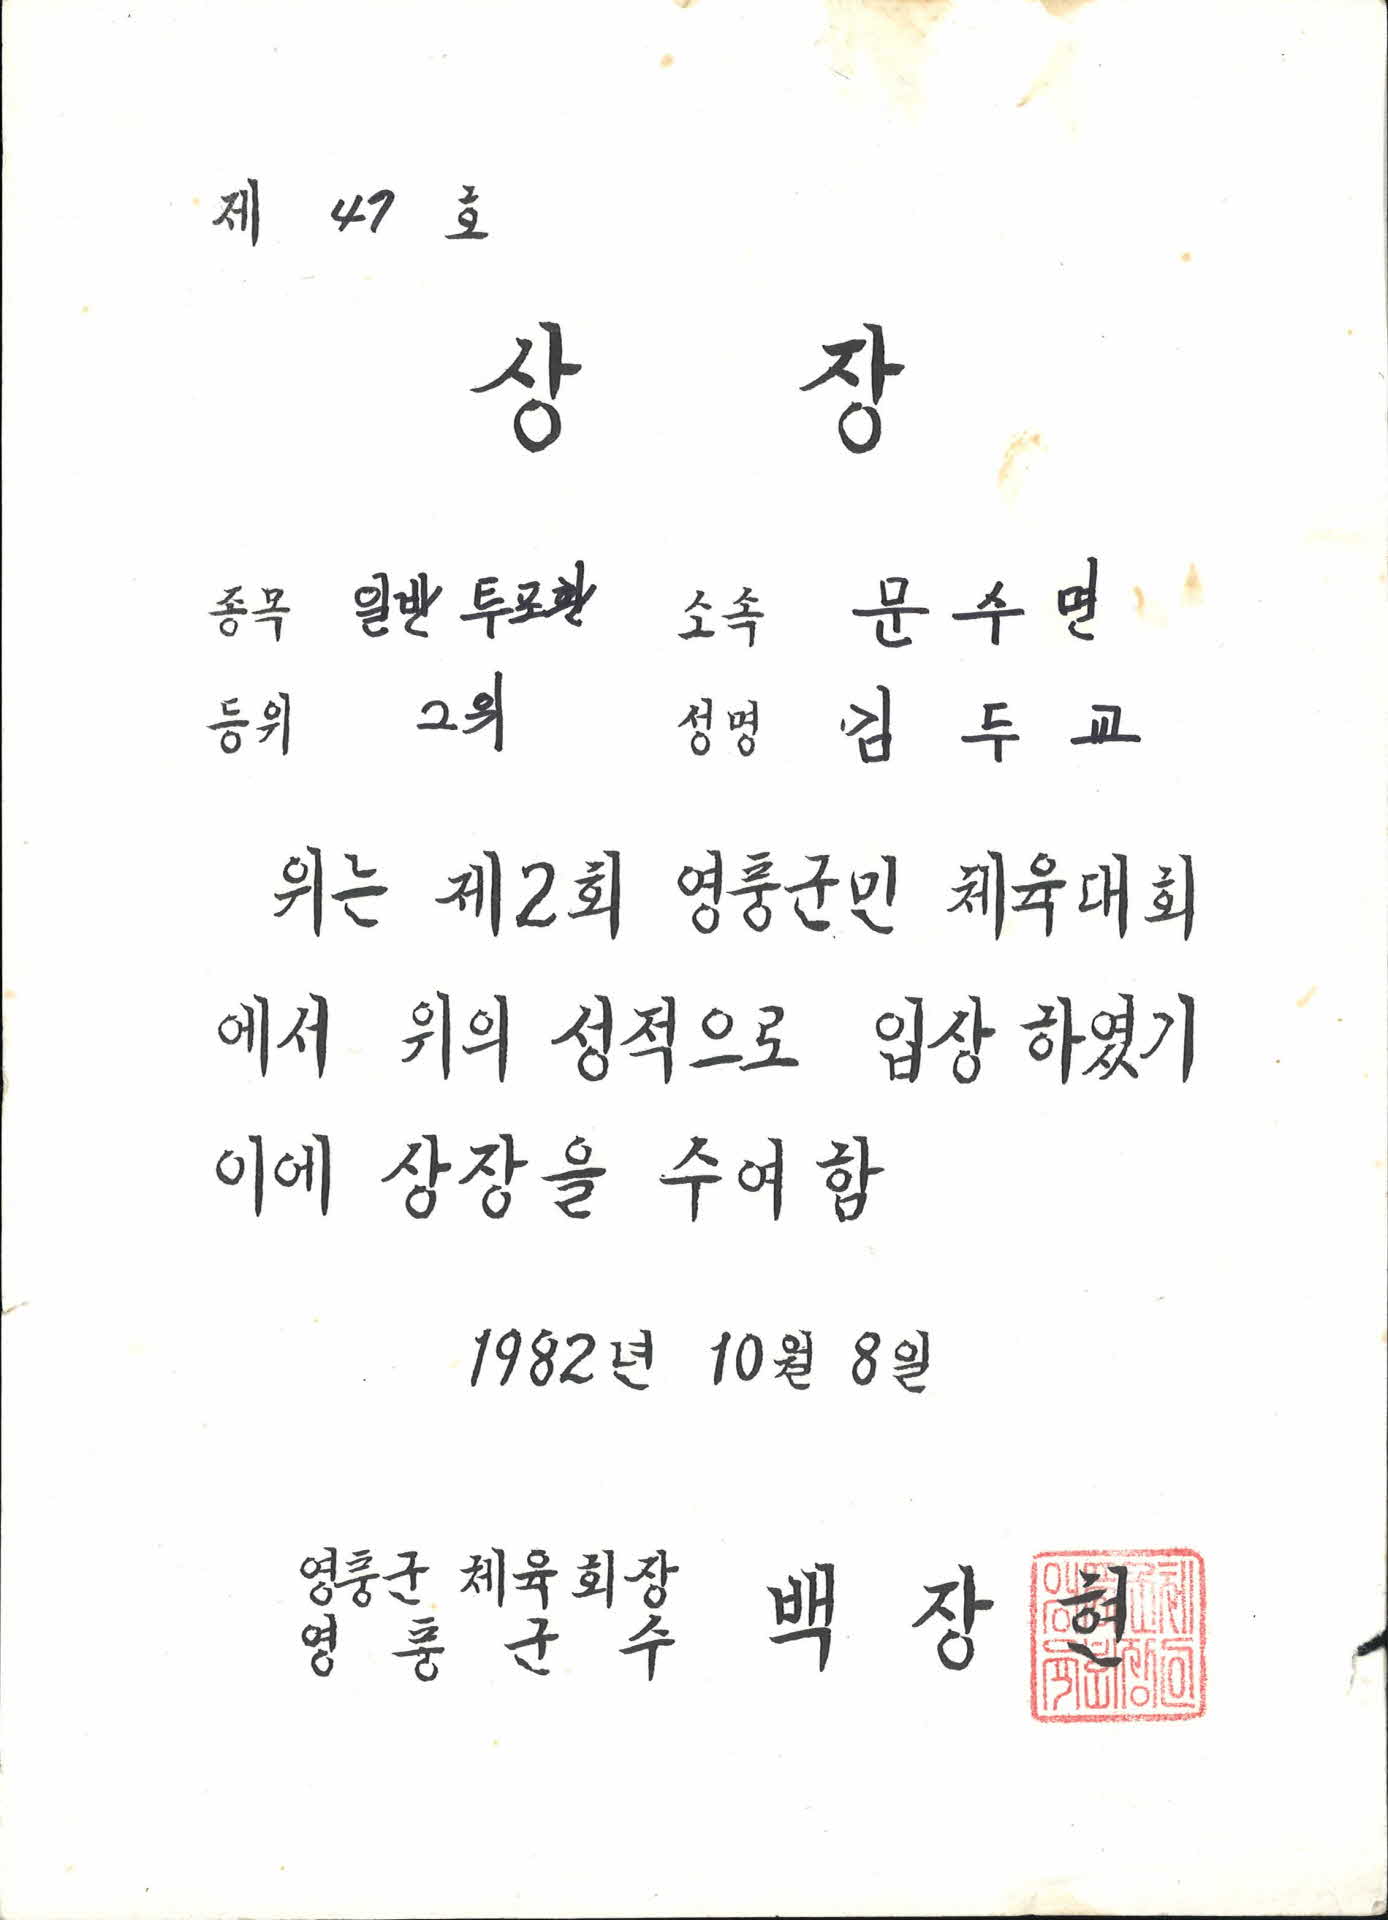 제 47 호
상 장
종목 일반 투포환 소속 문수면
등위 2위 성명 김두교
위는 제2회 영풍군민 체육대회
에서 위의 성적으로 입상 하였기
이에 상장을 수여함
1982년 10월 8일
영풍군 체육회장
영풍군수 백장현